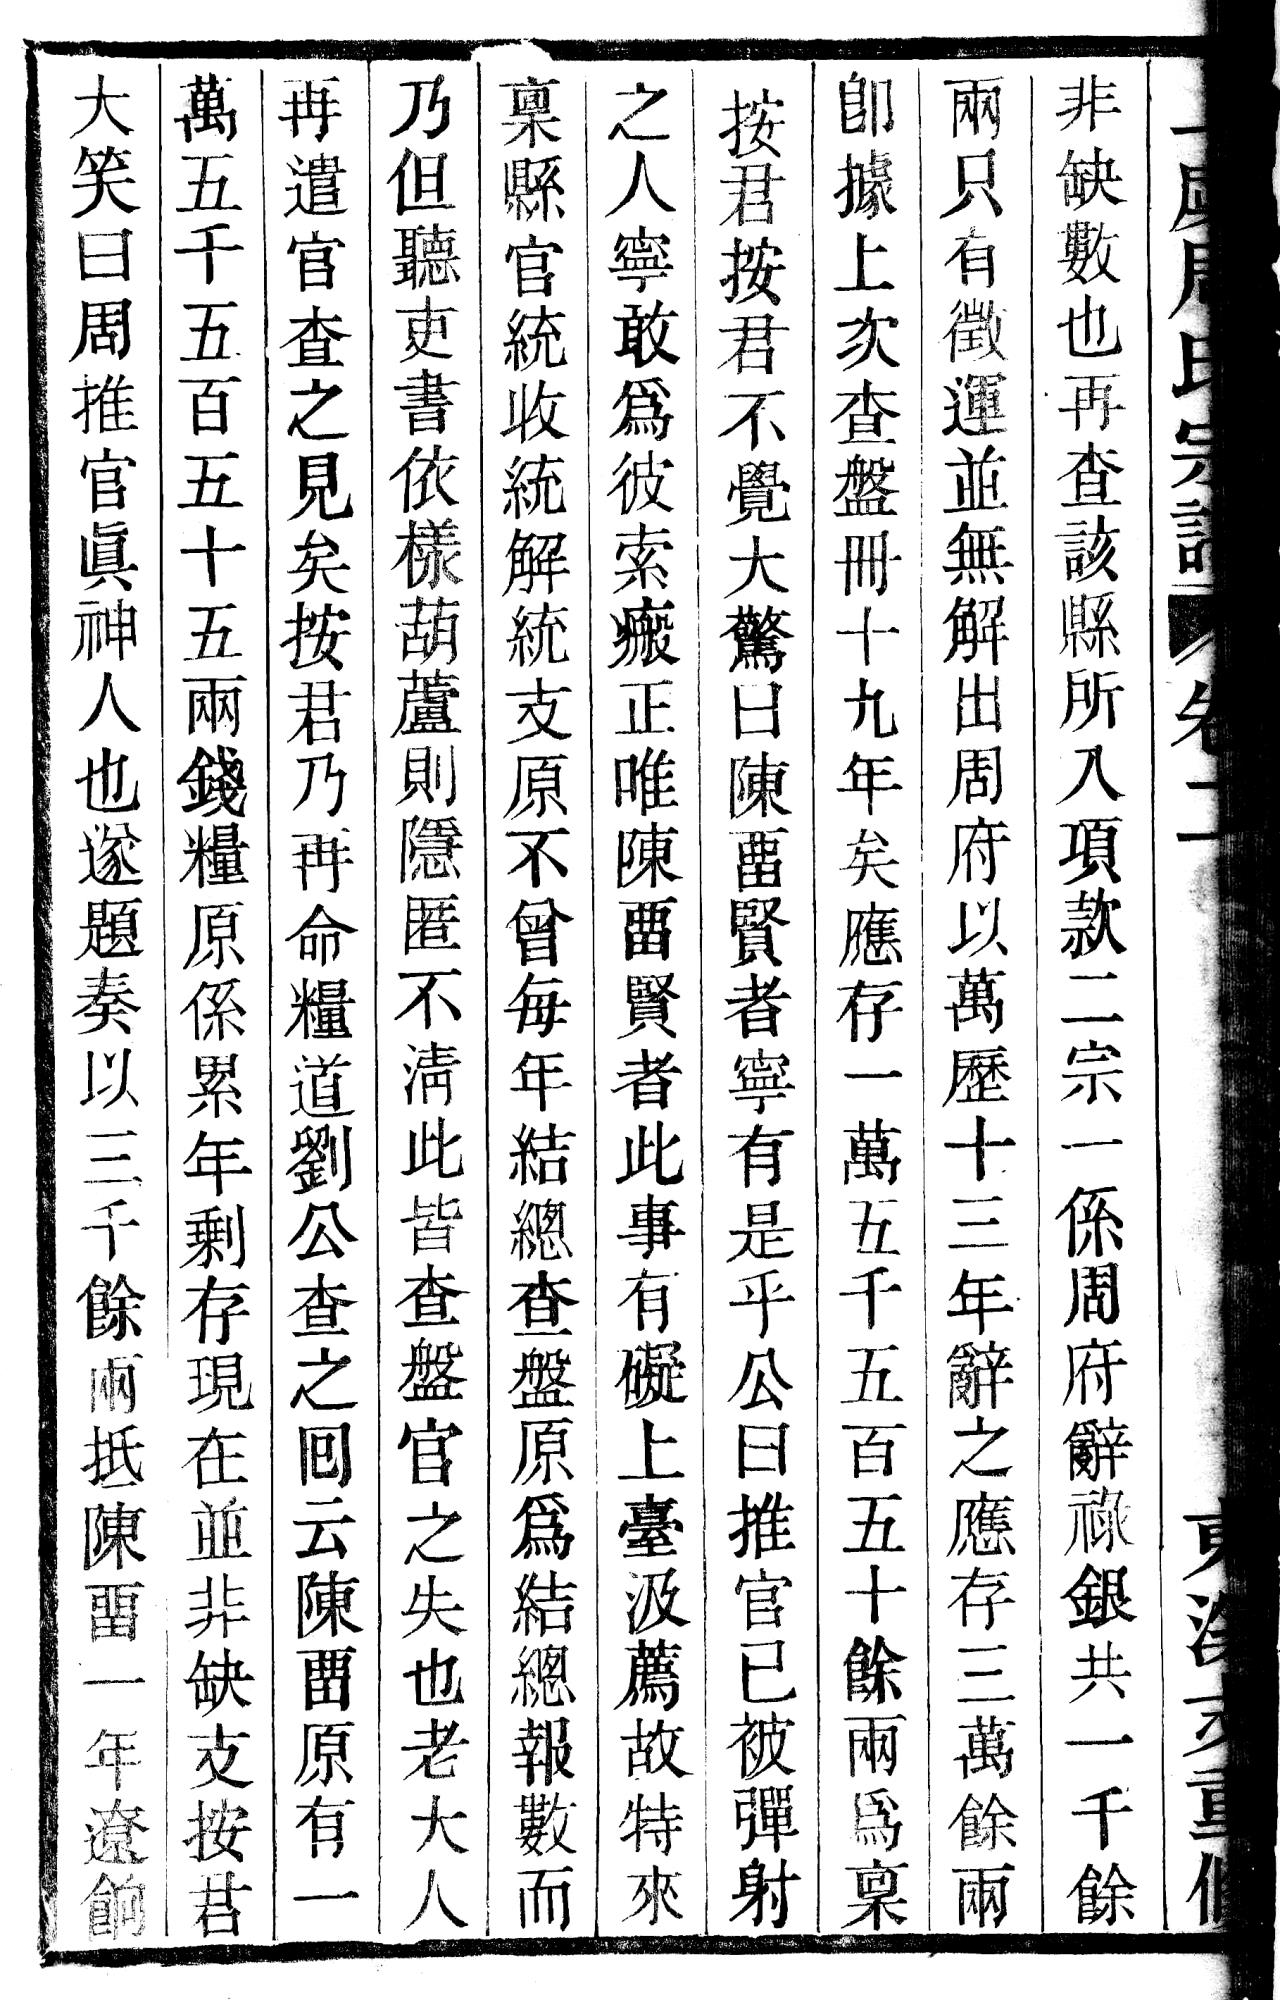 周氏宗譜 卷二 重修
非缺數也再查該縣所入項款二宗一係周府辭祿銀共一千餘
兩只有徵運並無解出周府以萬歷十三年辭之應存三萬餘兩
卽據上次查盤冊十九年矣應存一萬五千五百五十餘兩爲稟
按君按君不覺大驚曰陳畱賢者寧有是乎公曰推官已被彈射
之人寧敢爲彼索瘢正唯陳畱賢者此事有礙上臺汲薦故特來
稟縣官統收統解統支原不曾每年結總查盤原爲結總報數而
乃但聽吏書依樣葫蘆則隱匿不淸此皆查盤官之失也老大人
再遣官查之見矣按君乃再命糧道劉公查之回云陳畱原有一
萬五千五百五十五兩錢糧原係累年剩存現在並非缺支按君
大笑曰周推官眞神人也遂題奏以三千餘兩抵陳畱一年遼餉